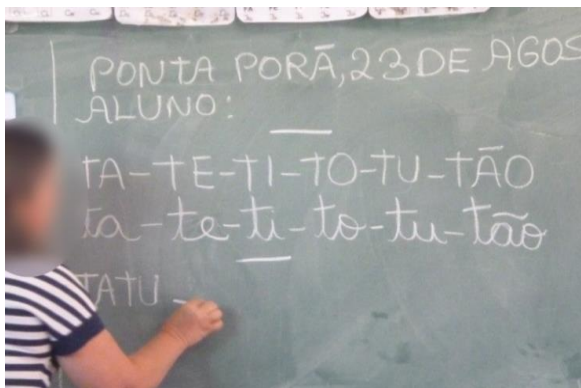 PONTA PORÃ, 23 DE AGOS
ALUNO:
TA-TE-TI-TO-TU-TÃO
ta-te-ti-to-tu-tão
TATU